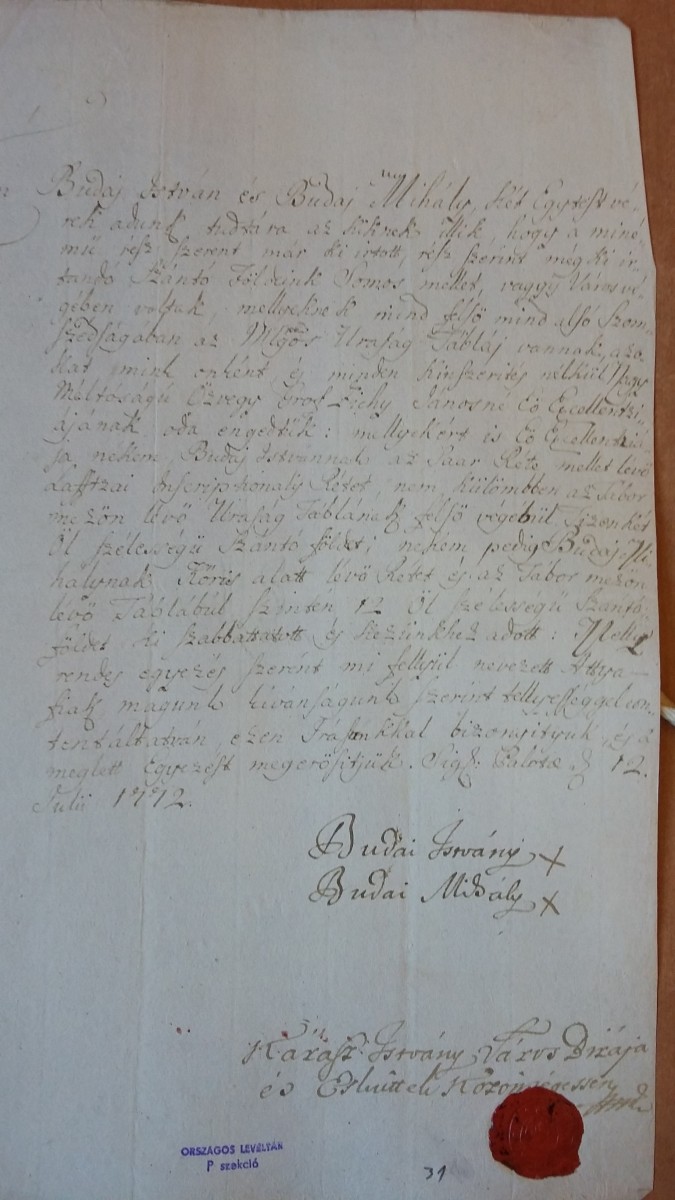 Budaj István és Budaj Mihály, két Egytest vé-
rek adunk tudtára az kiknek illik, hogy a miné-
mű, resz szerent már ki irtott, resz szerint még ki ir-
tandó Szántó Földeink Somos mellet, vaggy Város vé-
gében voltak mellyeknek mind felső mind alsó Szom-
szédságában az Mlgős Uraság Táblái vannak, azo-
kat mink önként és minden kinszerités nélkül Nagy
Méltóságú Özvegy Gróf Zichy Jánosné Eő Excellentzi-
ájanak oda engedtük: mellyekért is Eő Excellentziá-
ja nekem Budaj Istvánnak az Saar Réte mellet levő
Inscriptionaly Rétet, nem külömbben az Tábor
mezőn lévő Uraság Táblának felső végebül Tizenkét
Öl szélességű Szántó földet; nekem pedig Budaj Mi-
hálynak Kőris alatt lévő Rétet és az Tábor mezőn
lévő Táblábúl szintén 12 Öl szélességű Szántó
földet ki szabbattatott és kezünkhez adott:
rendes egyezés szerént mi fellyül nevezett Attya-
fiak magunk kívánságunk szerint tellyességgel con-
tentáltatván ezen Irásunkkal bizonyittyuk, és a
meglett Egyezést megerősitjük. Sig: 12.
Julii 1772.
Budai Istvány X
Budai Mihály X
Karász Istvány Város Birája
és Esküttek Közönségessen
ORSZÁGOS LEVÉLTÁR
P szekció
31